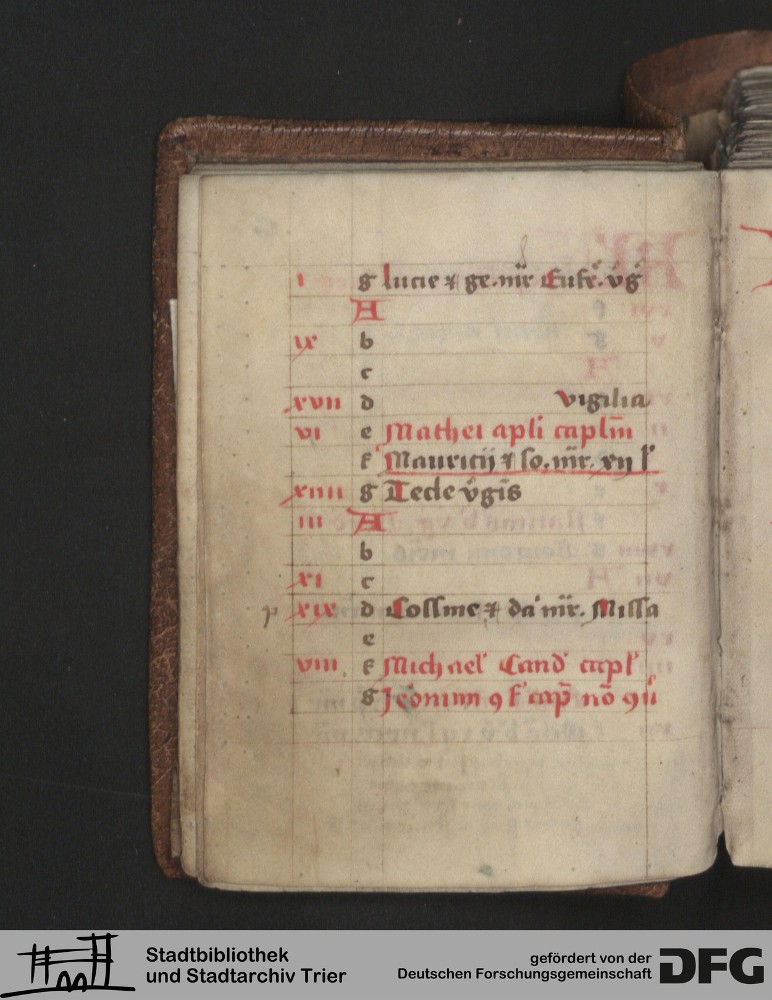 i g Lucie ⁊ ge. mr̄ Eufe. v̄g
A
ix b
c
xvii d vigilia
vi e Mathei apli caplm̄
f Mauricij ⁊ so. mr̄. xij l'
xiiii g Tecle v̄gīs
iii A
b
xi c
xix d Cossme ⁊ da mr̄. Missa
e
viii f Michael' Cand' capl'
g Jeonim 9f' cap̄ nō 9ū
Stadtbibliothek
und Stadtarchiv Trier
gefördert von der
Deutschen Forschungsgemeinschaft
DFG